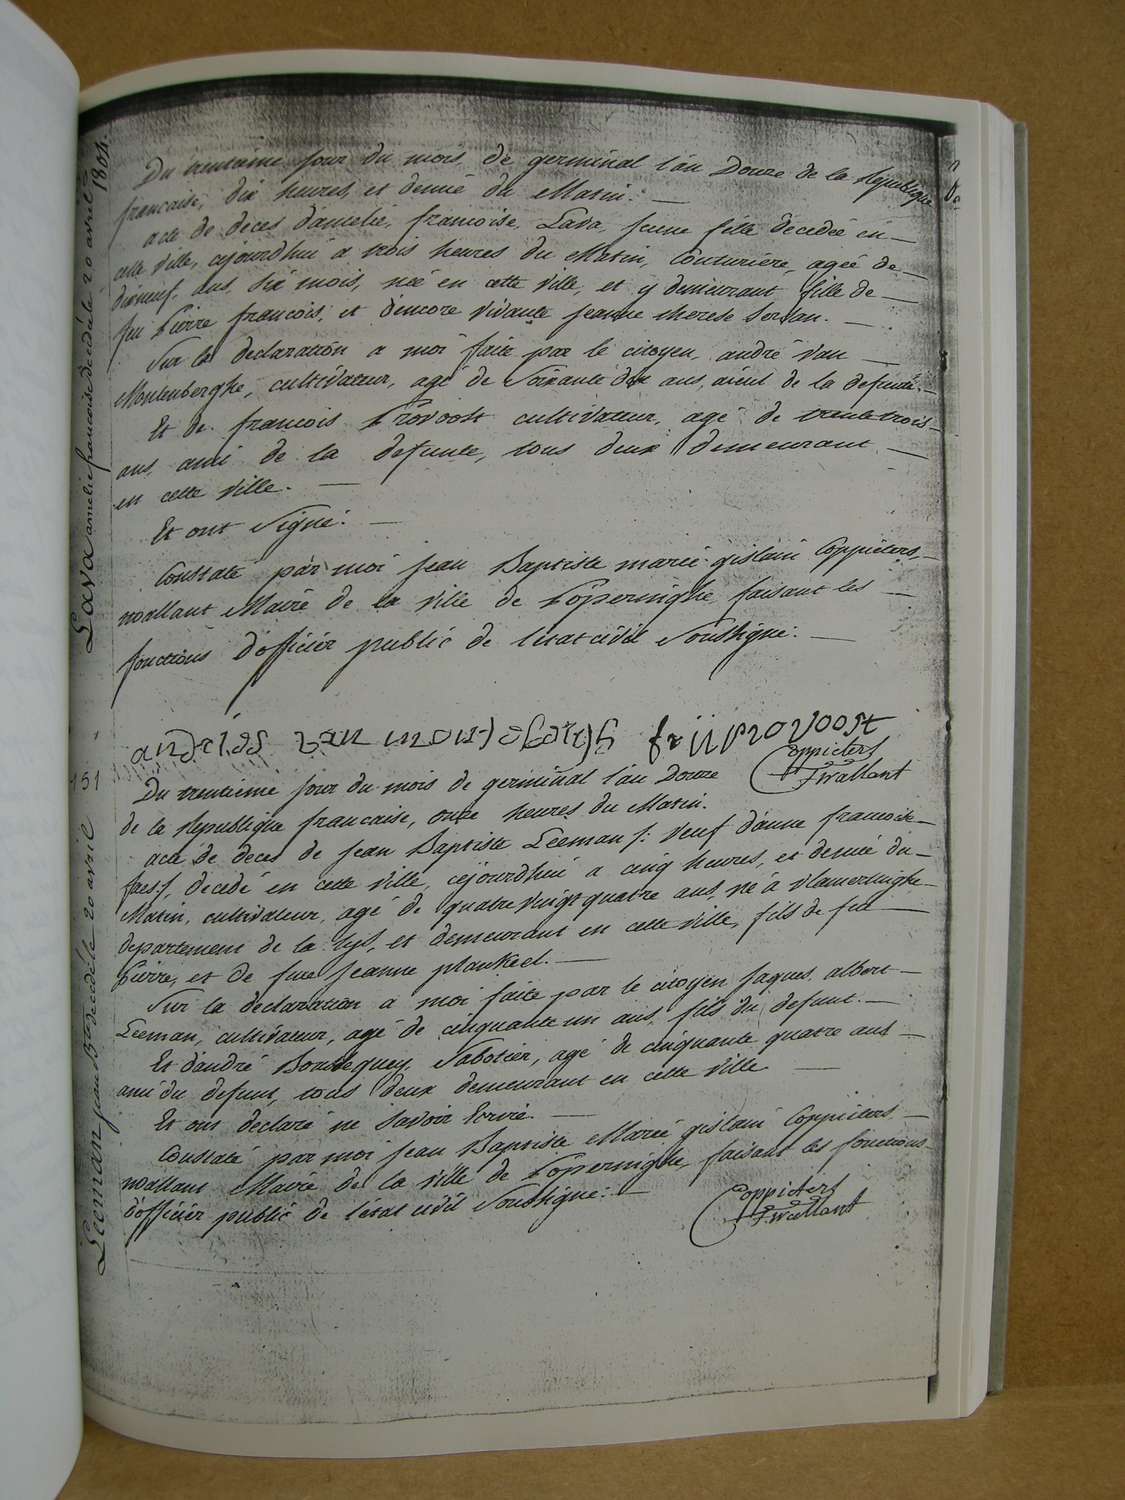 Du trentieme jour du mois de germinal l'an Douze de la Republique
francaise, dix heures et demie du Matin: —
acte de deces d'amelie, francoise, Lava, jeune fille decedée en —
cette ville, cejourd'hui a trois heures du Matin, Couturière, ageé de —
dixneuf ans, six mois, neé en cette ville, et y demeurant fille de —
feu Pierre francois, et d'encore vivante jeanne therese —
Sur la declaration a moi faite par le citoyen andré van —
Moutenberghe, cultivateur, agé de Soixante dix ans, aieul de la defunte. —
Et de francois Provoost cultivateur, agé de trente trois —
ans, ami de la defunte, tous deux demeurant —
en cette ville. —
Et ont Signé: —
Constaté par moi jean Baptiste marie gislain Coppieters —
wallant Maire de la ville de Poperinghe faisant les —
fonctions d'officier public de l'etat civil Soussigné: —
andries van frans provoost
Coppieters
Twallant
151
Du trentieme jour du mois de germinal l'an Douze
de la Republique francaise, onze heures du Matin.
acte de deces de jean Baptiste Leeman /: veuf d'anne francoise —
faes:/, decedé en cette ville, cejourd'hui a cinq heures, et demie du —
Matin, cultivateur, agé de quatre vingt quatre ans, né à vlamertinghe —
departement de la Lys, et demeurant en cette ville, fils de feu —
Pierre, et de feue jeanne plankeel. —
Sur la declaration a moi faite par le citoyen jaques albert —
Leeman, cultivateur, agé de cinquante un ans, fils du defunt. —
Et d'andré Sabotier, agé de cinquante quatre ans —
ami du defunt, tous deux demeurant en cette ville —
Et ont declaré ne Savoir Ecrire. —
Constaté par moi jean Baptiste Marie gislain Coppieters —
wallant Maire de la ville de Poperinghe faisant les fonctions
d'officier public de l'etat civil Soussigné: —
Coppieters
Twallant
Lava amelie francoise decedé le 20 avril 1804.
Leeman jean Bte decedé le 20 avril